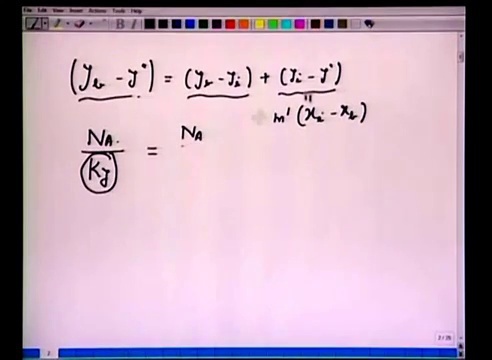 File Edit View Insert Actions Tools Help
(y_b - y*) = (y_b - y_i) + (y_i - y*)
m' (x_i - x_b)
N_A / K_y = N_A